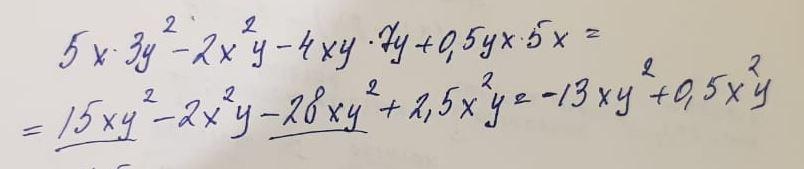 5x·3y²-2x²y-4xy·7y+0,5yx·5x=
=15xy²-2x²y-28xy²+2,5x²y=-13xy²+0,5x²y